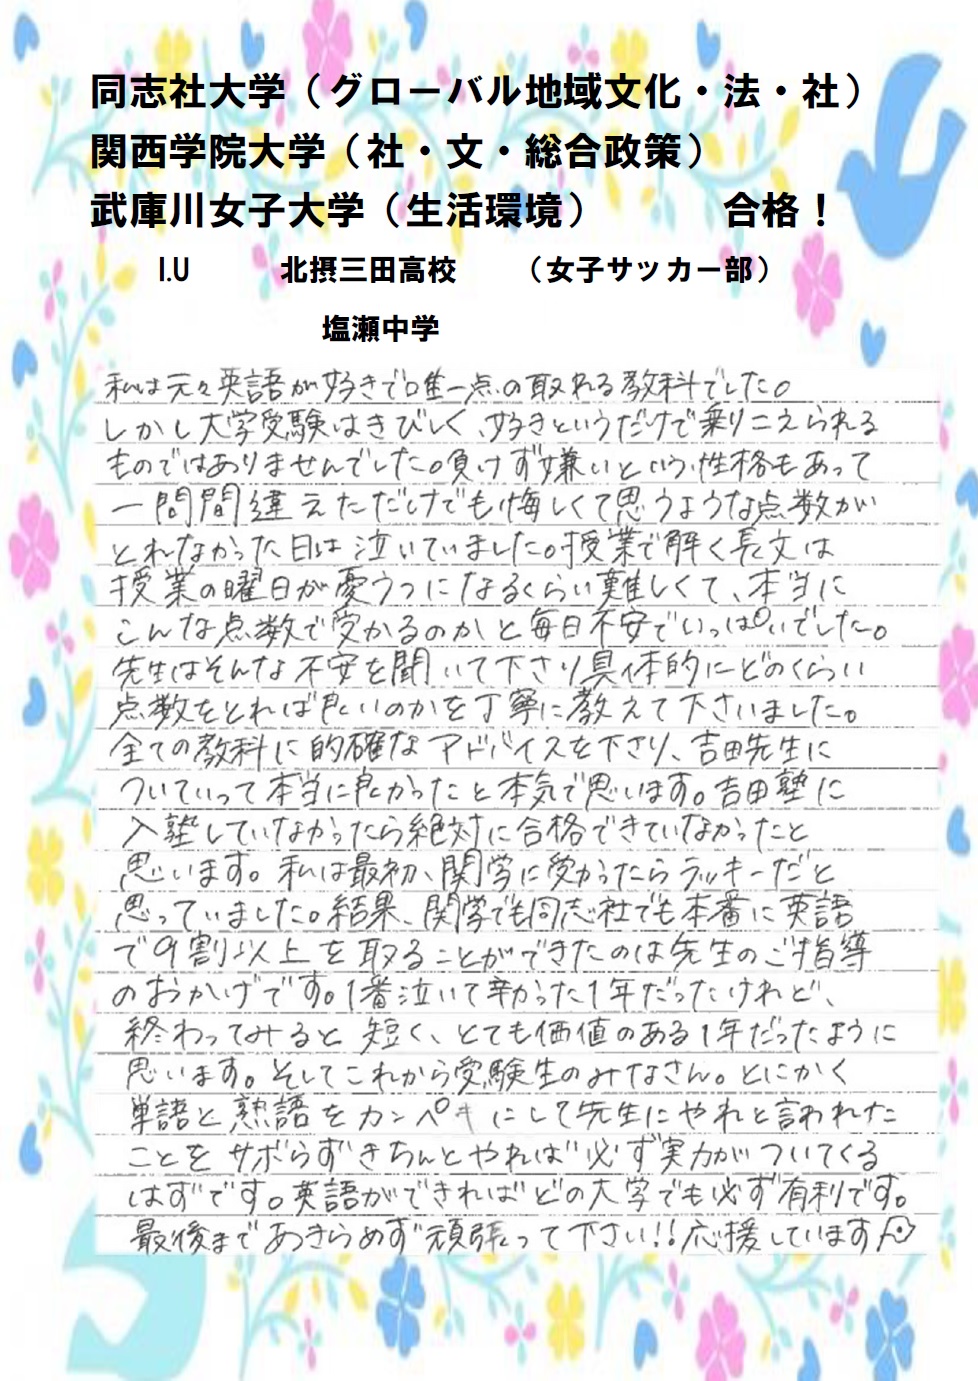 同志社大学（グローバル地域文化・法・社）
関西学院大学（社・文・総合政策）
武庫川女子大学（生活環境）　　　合格！
I.U　　　北摂三田高校　　（女子サッカー部）
塩瀬中学
私は元々英語が好きで唯一点の取れる教科でした。
しかし大学受験はきびしく、好きというだけで乗りこえられる
ものではありませんでした。負けず嫌いという性格もあって
一問間違えただけでも悔しくて思うような点数が
とれなかった日は泣いていました。授業で解く長文は
授業の曜日が憂うつになるくらい難しくて、本当に
こんな点数で受かるのかと毎日不安でいっぱいでした。
先生はそんな不安を聞いて下さり具体的にどのくらい
点数をとれば良いのかを丁寧に教えて下さいました。
全ての教科に的確なアドバイスを下さり、吉田先生に
ついていって本当に良かったと本気で思います。吉田塾に
入塾していなかったら絶対に合格できていなかったと
思います。私は最初、関学に受かったらラッキーだと
思っていました。結果、関学でも同志社でも本番に英語
で9割以上を取ることができたのは先生のご指導
のおかげです。1番泣いて辛かった1年だったけれど、
終わってみると短く、とても価値のある1年だったように
思います。そしてこれから受験生のみなさん。とにかく
単語と熟語をカンペキにして先生にやれと言われた
ことをサボらずきちんとやれば必ず実力がついてくる
はずです。英語ができればどの大学でも必ず有利です。
最後まであきらめず頑張って下さい!!応援しています